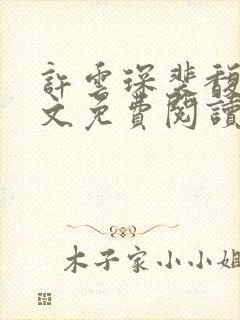 許雲琛裴馥
文免費閱讀
木子家小小姐